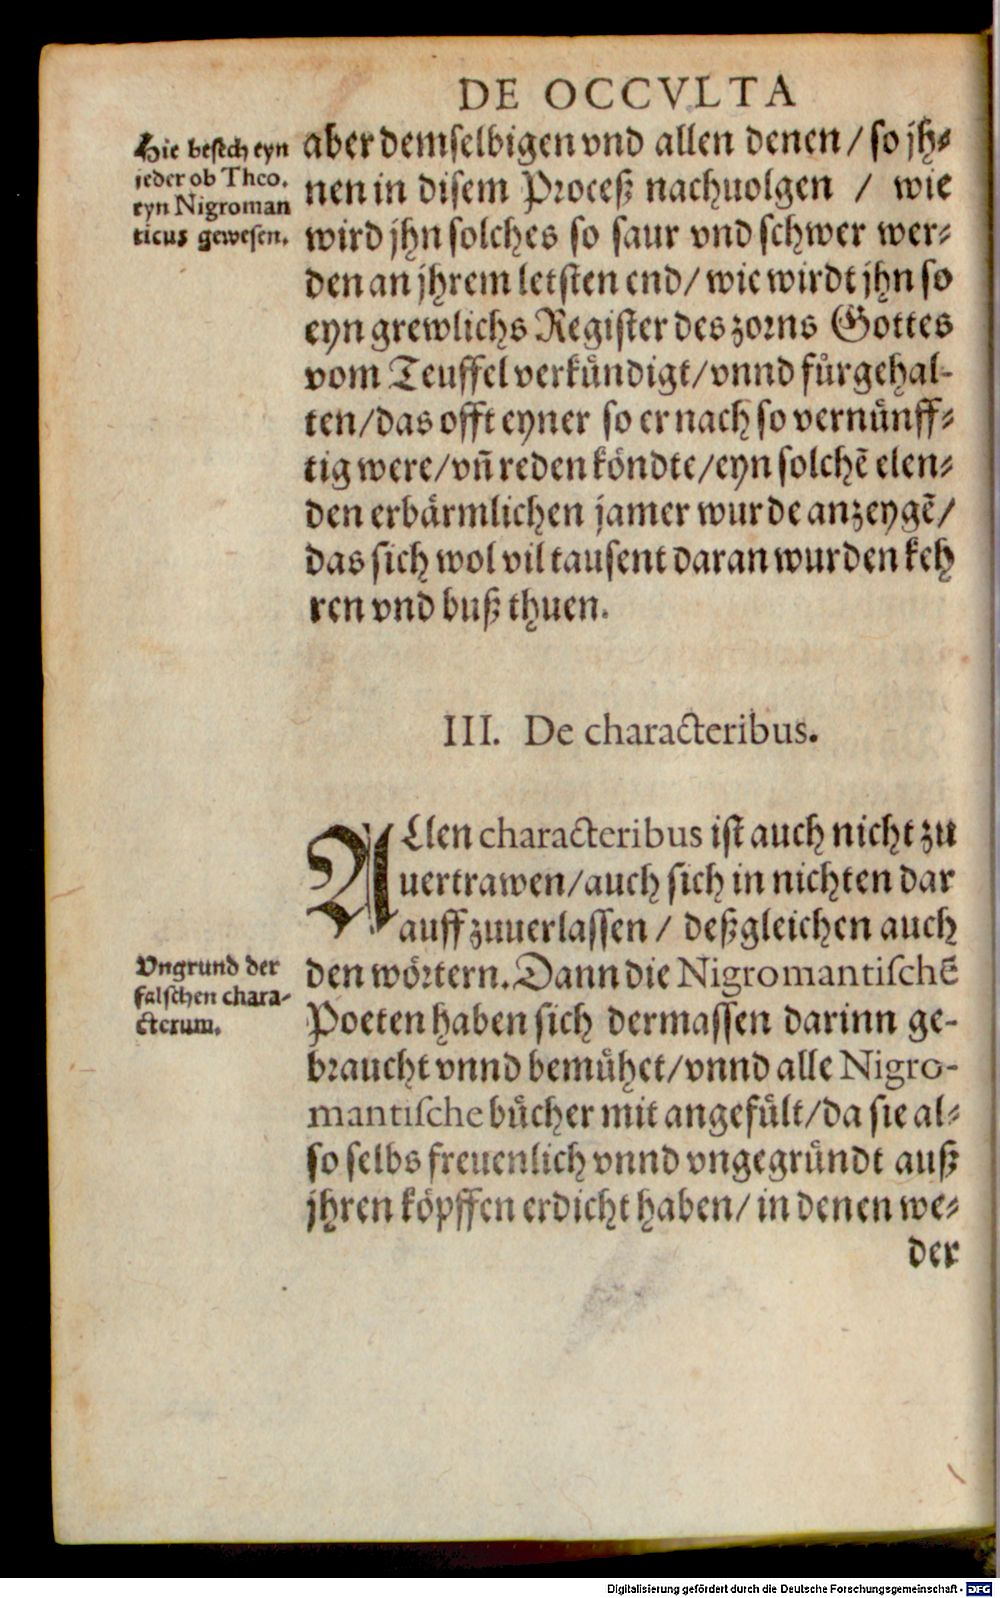 DE OCCVLTA
Hie besech eyn
jeder ob Theo.
eyn Nigroman
ticus gewesen.
aber demselbigen vnd allen denen / so jh⸗
nen in disem Proceß nachuolgen / wie
wird jhn solches so saur vnd schwer wer⸗
den an jhrem letsten end/ wie wirdt jhn so
eyn grewlichs Register des zorns Gottes
vom Teuffel verkuͤndigt/vnnd fuͤrgehal-
ten/das offt eyner so er nach so vernuͤnff⸗
tig were/vn̄ reden koͤndte/eyn solchē elen⸗
den erbaͤrmlichen jamer wurde anzeygē/
das sich wol vil tausent daran wurden keh
ren vnd buß thuen.
III. De characteribus.
ALlen characteribus ist auch nicht zu
uertrawen/auch sich in nichten dar
auff zuuerlassen / deßgleichen auch
Vngrund der
falschen chara-
cterum.
den woͤrtern. Dann die Nigromantischē
Poeten haben sich dermassen darinn ge-
braucht vnnd bemuͤhet/vnnd alle Nigro-
mantische buͤcher mit angefuͤlt/da sie al⸗
so selbs freuenlich vnnd vngegruͤndt auß
jhren koͤpffen erdicht haben/ in denen we⸗
der
Digitalisierung gefördert durch die Deutsche Forschungsgemeinschaft - DFG